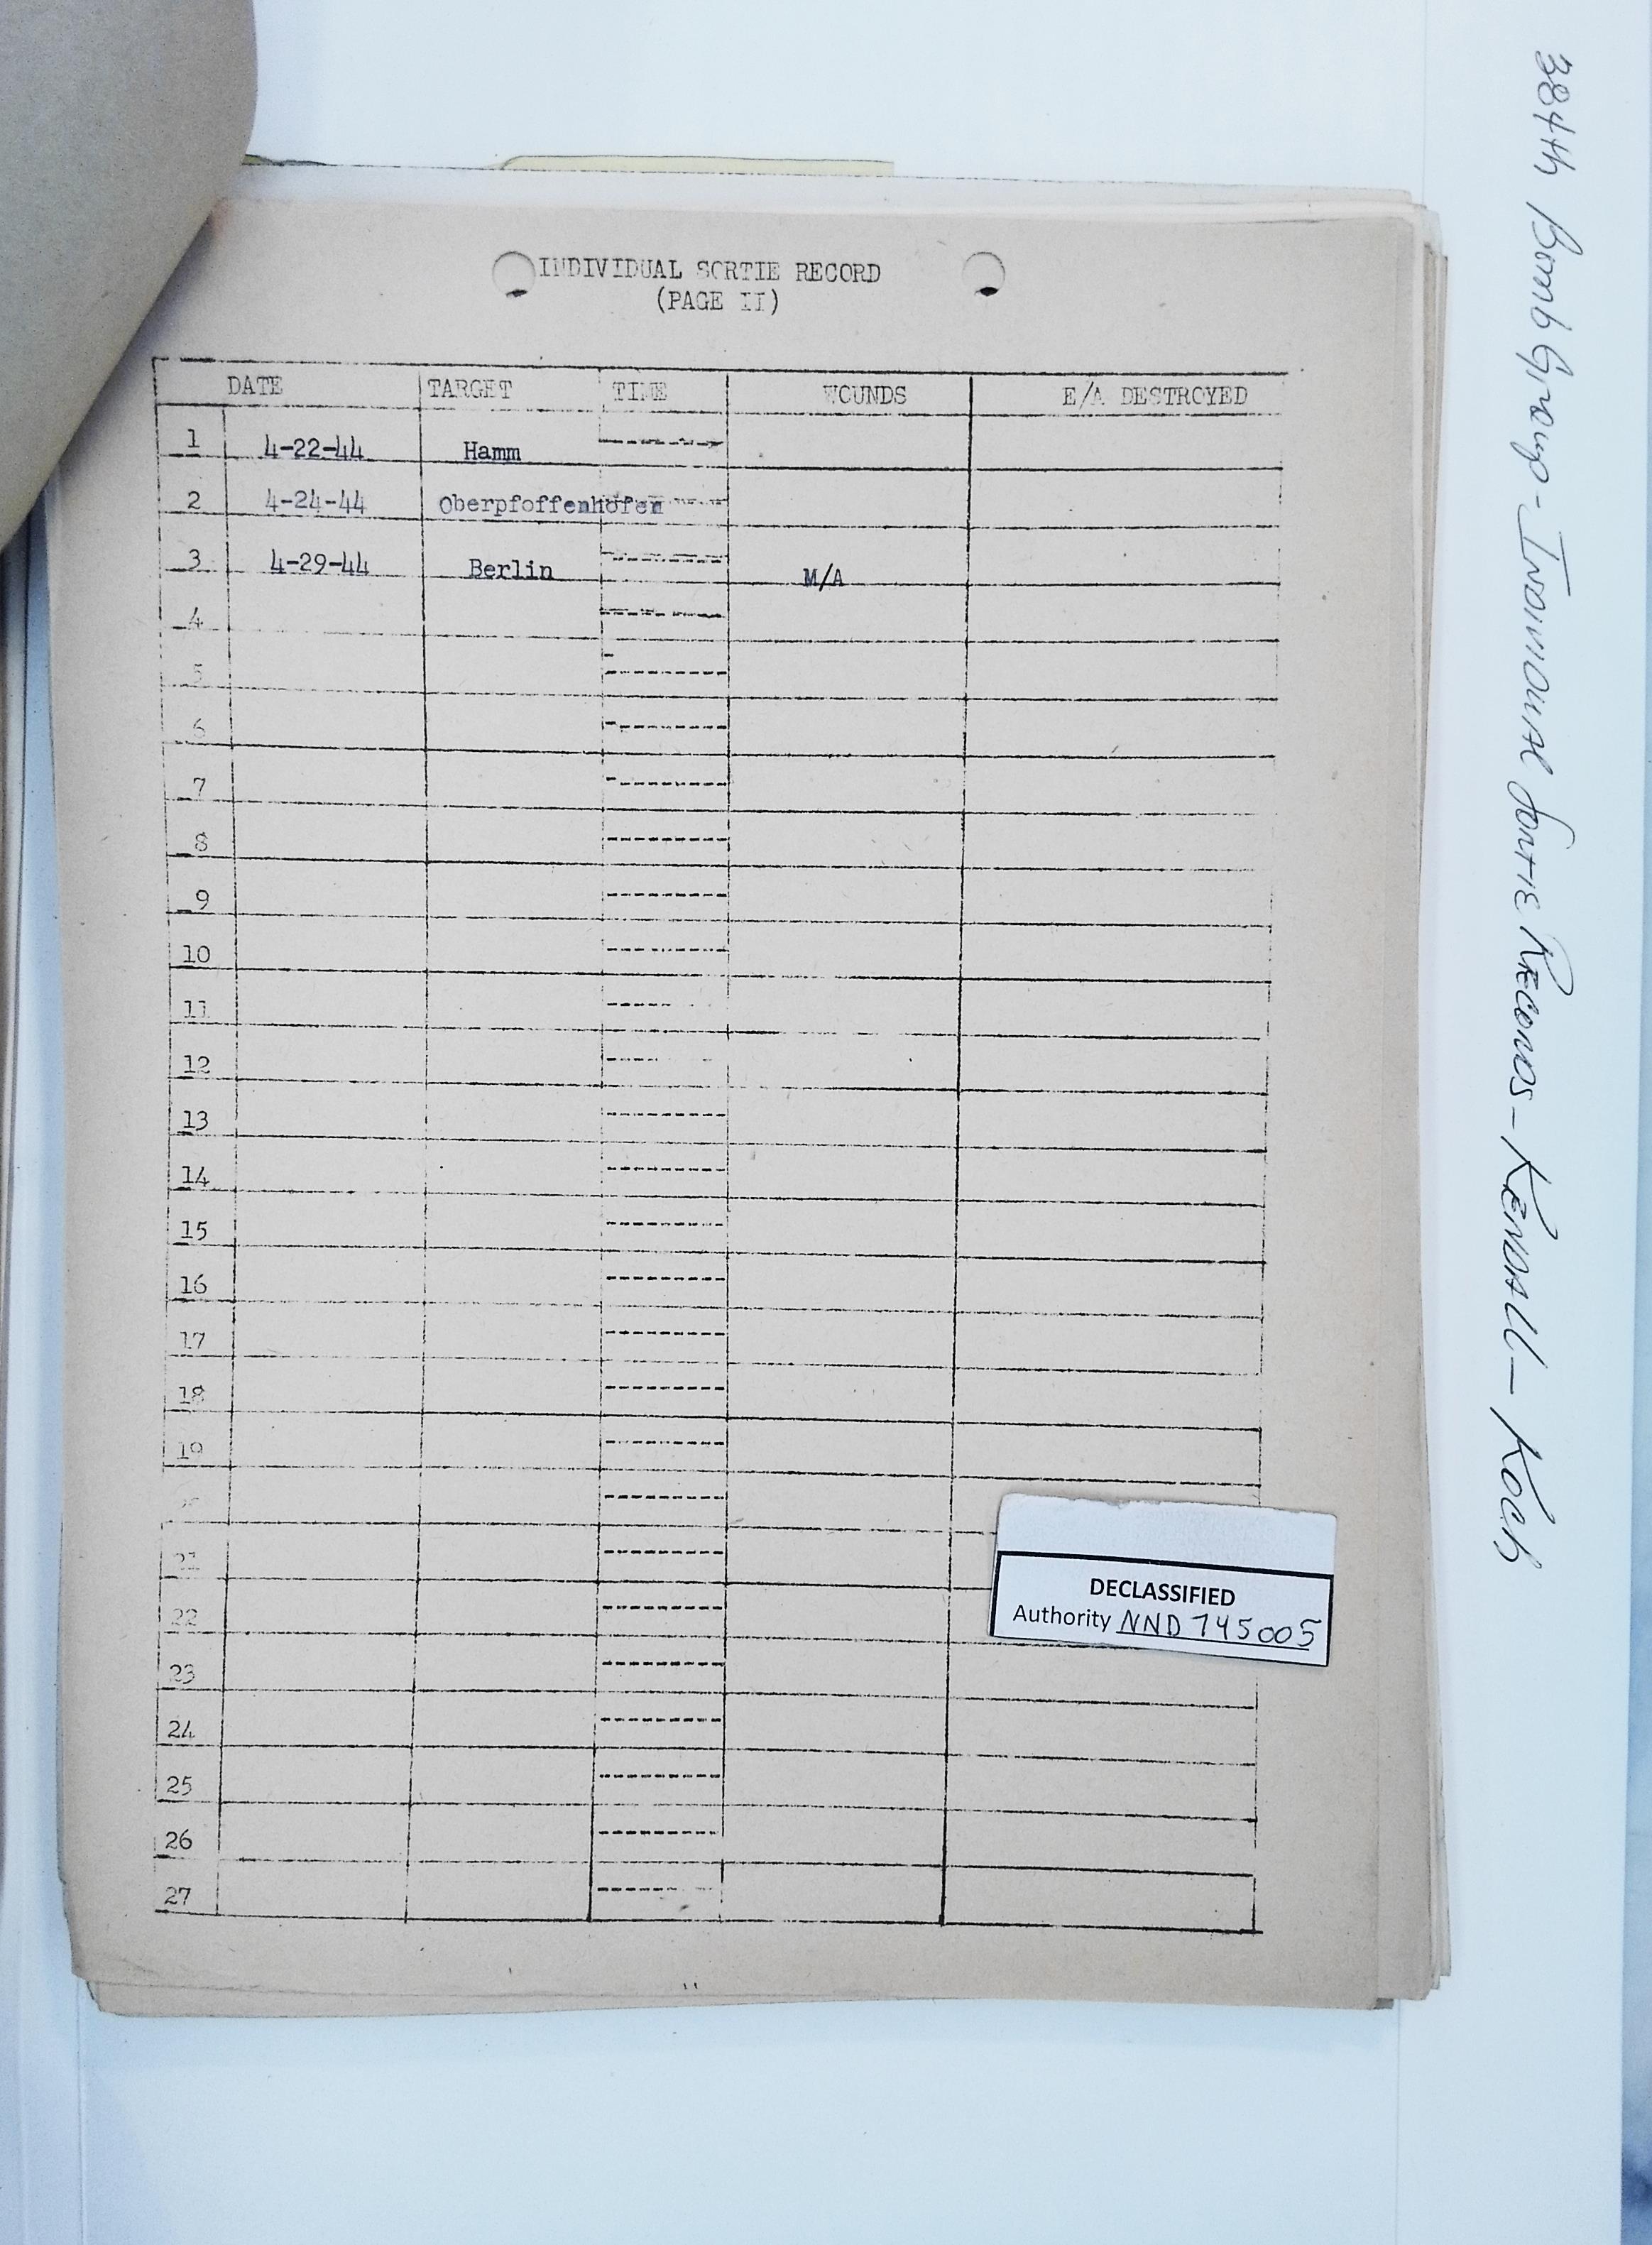 INDIVIDUAL SORTIE RECORD
(PAGE II)
DATE TARGET TIME WOUNDS E/A DESTROYED
1 4-22-44 Hamm
2 4-24-44 Oberpfoffenhofen
3 4-29-44 Berlin M/A
4
5
6
7
8
9
10
11
12
13
14
15
16
17
18
19
21
22
23
24
25
26
27
DECLASSIFIED
Authority NND 745005
384th Bomb Group - Individual Sortie Records - Kendall - Koch